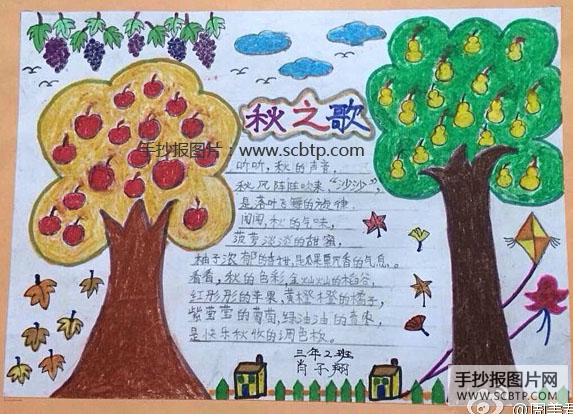 秋之歌
手抄报图片:www.scbtp.com
听听,秋的声音,
秋风阵阵吹来"沙沙",
是落叶飞舞的旋律.
闻闻,秋的气味,
菠萝淡淡的甜蜜,
柚子浓郁的
的气息。
看看,秋的色彩,金灿灿的稻谷,
红彤彤的苹果,黄橙橙的橘子,
紫莹莹的葡萄,绿油油的青枣,
是快乐秋收的调色板。
三年2班
肖子翔
手抄报图片网
WWW.SCBTP.COM